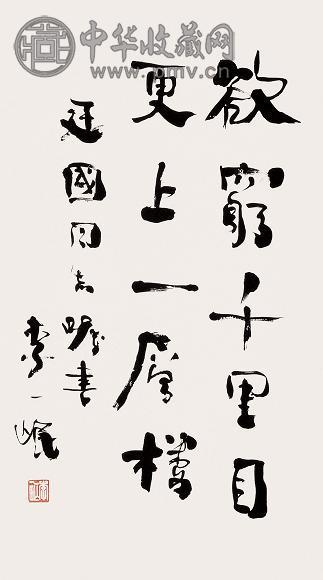 中华收藏网
www.pmv.cn
欲窮千里目
更上一層樓
廷國同志
嘱書
李一氓